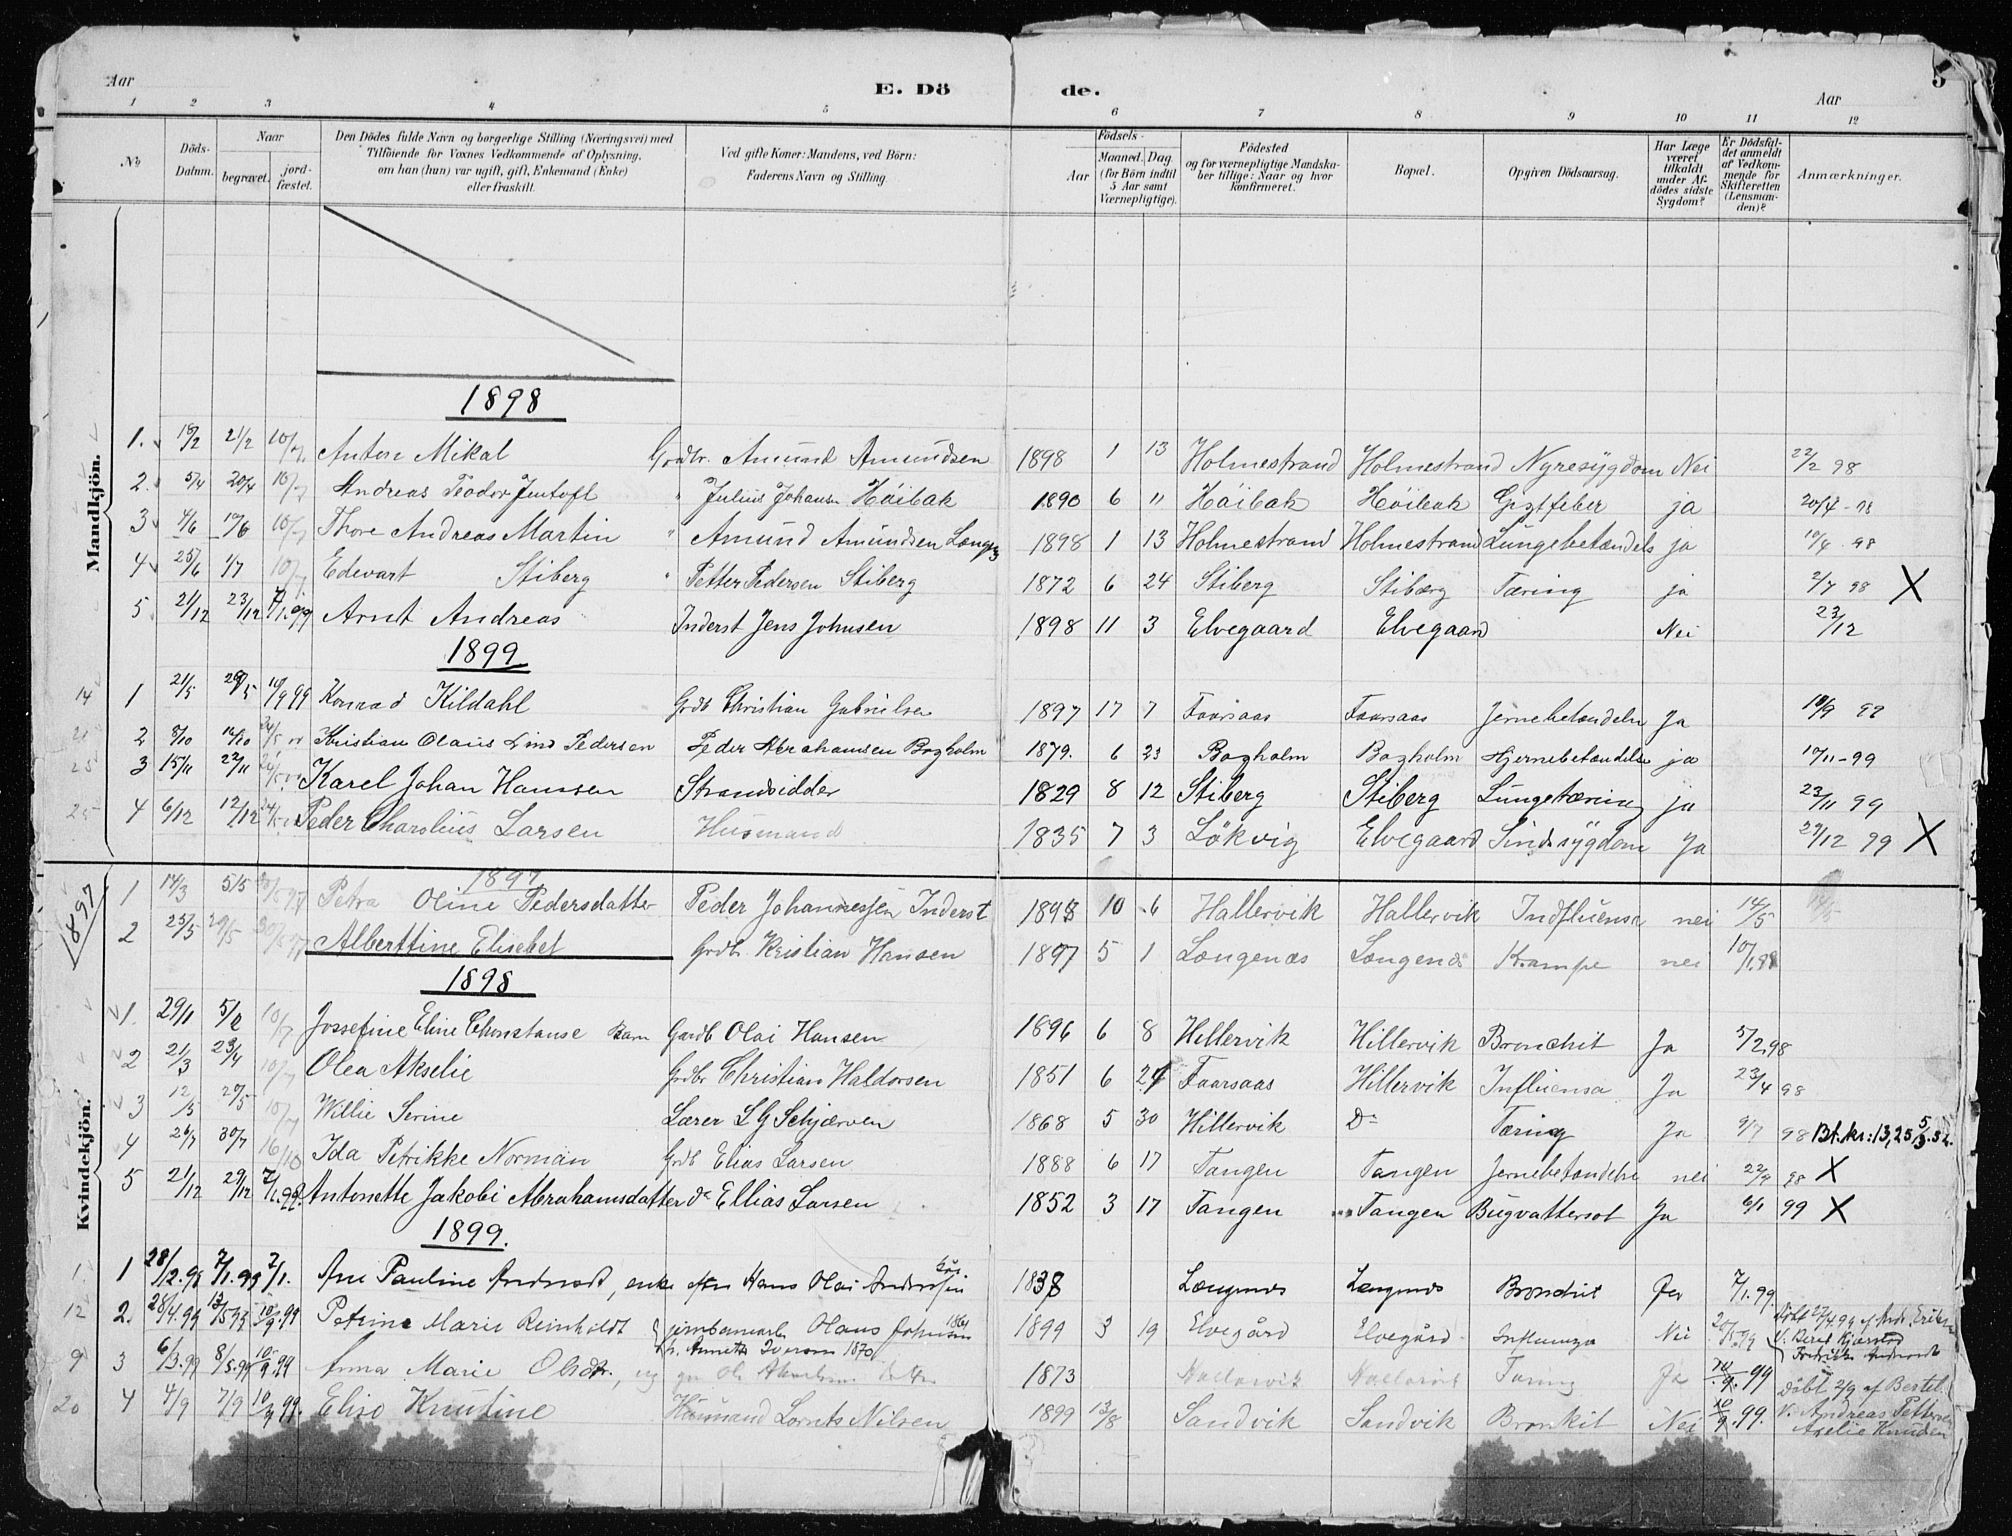 Aar E. Dö de. Aar 5
1 2 3 4 5 6 7 8 9 10 11 12
No Döds-Datum. Naar begravet. jord-fæstet. Den Dödes fulde Navn og borgerlige Stilling (Næringsvei) med Tilföiende for Voxnes Vedkommende af Oplysning, om han (hun) var ugift, gift, Enkemand (Enke) eller fraskilt. Ved gifte Koner: Mandens, ved Börn: Faderens Navn og Stilling. Aar Födsels- Maaned. Dag. (for Börn indtil 5 Aar samt Værnepligtige). Födested og for værnepligtige Mandskaber tillige: Naar og hvor konfirmeret. Bopæl. Opgiven Dödsaarsag. Har Læge været tilkaldt under Afdödes sidste Sygdom? Er Dödsfaldet anmeldt af Vedkommende for Skifteretten (Lensmanden)? Anmærkninger.
Mandkjön.
1898
1. 18/2 21/2 10/7. Antore Mikal Grdbr. Amund Amundsen 1898 1 13 Holmestrand Holmestrand Nyresygdom Nei 22/2 98
2. 5/4 20/4 10/7 Andreas Teodor Jentoft " Julius Johansen Höibak 1890 6 " Höibak Höibak Gigtfeber ja 20/4-98
3 4/6 10/6 10/7 Thore Andreas Martin " Amund Amundsen 1898 1 13 Holmestrand Holmestrand Lungebetændels ja 98
4 25/6 1/7 10/7. Edevart Stiberg " Petter Pedersen Stiberg 1872 6 24 Stiberg Stibærg Tæring ja 2/7 98 X
5. 21/12 23/12 7/1.99 Arnt Andreas Inderst Jens Johnsen 1898 11 3 Elvegaard Elvegaard Nei 23/12
1899
14 1 21/5 29/5 10/9 99 Konrad Kildahl Grdb Christian Gabrielsen 1897 17 7 Faarsaas Faarsaas Jernebetændelse Ja 10/9 99
21 2 8/10 16/10 24/5 Kristian Olaus Lind Pedersen Peder Abrahamsen Bogholm 1879. 6 23 Bogholm Bogholm Hjernebetændelse ja 10/11-99
25 3 15/11 22/11 24/5 Karel Johan Hansen Strandsidder 1829 8 12 Stiberg Stiberg Lungetæring ja 23/11 99
25 4 6/12 12/12 24/5 Peder Larsen Husmand 1835 7 3 Lökvig Elvegaard Sindssygdom Ja 29/12 99 X
1897
1897
1 14/3 5/5 30/5 97 Petra Oline Pedersdatter Peder Johannessen Inderst 1898 10 6 Hallervik Hallervik Indfluensa nei 14/5
2 25/5 29/5 30/5 97 Alberttine Elisebet Grdb. Kristian Hansen 1897 5 1 Længenæs Længenæs Krampe nei 10/1.98
Kvindekjön.
1898
1. 29/1 5/2 10/7 Jossefine Eline Chonstanse Barn Gardb Olai Hansen 1896 6 8 Hillervik Hillervik Bronchit Ja 5/2.98
2 21/3 23/4 10/7 Olea Akselie Grdbr Christian Haldorsen 1851 6 24 Faarsaas Hillervik Influensa Ja 23/4 98
3 12/5 29/5 10/7 Willie Serine Lærer L G Schjærven 1868 5 30 Hillervik Do Tæring Ja 9/7 98 Bf. kr: 13,25
4 26/7 30/7 16/10 Ida Petrikke Norman Grdb Elias Larsen 1888 6 17 Tangen Tangen Jernebetændelse nei 22/9 98 X
5 21/12 29/12 7/1.99. Antonette Jakobi Abrahamsdatter do Ellias Larsen 1852 3 17 Tangen Tangen Bugvattersot Ja 6/1 99 X
1899.
1 1 28/12.98 7/1.99 7/1. Ane Pauline , enke efter Hans Olai 1838 Længenæs Længenæs Bronchit Ja 7/1.99
12 2. 28/4.99 13/5 99 10/9.99 Petrine Marie Reinholdt Olaus Johnsen 1861 1899 3 19 Elvegård Elvegård Influenza Nei 20/5 99 Döbt 27/4 99 af
h. Annette Iversen 1870 V. Beret
9 3 6/3.99 8/5.99 10/9.99 Anna Marie Olsdtr., ug 1873 Hallervik Hallervik Tæring Ja 10/9.99
20 4 4/9 7/9 10/9 99. Elise Knutine Husmand Lorents Nilsen 1899 13/8 Sandvik Sandvik Bronkit Nei 10/9.99. Döbt 2/9 af Bertel
V. Andreas Pettersen
Aselie Knudsen